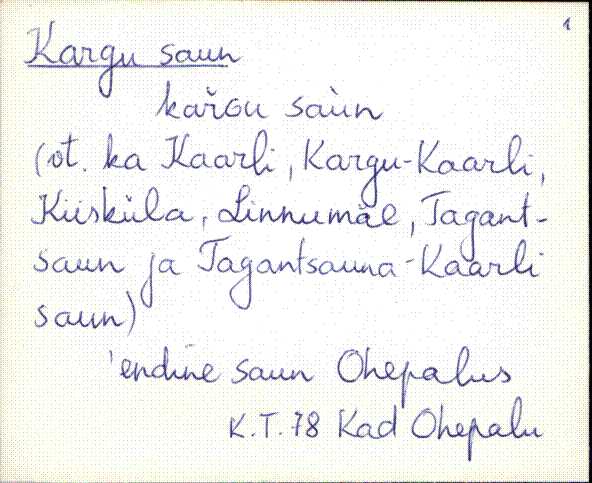 1
Kargu saun
kařGu saùn
(vt. ka Kaarli, Kargu-Kaarli,
Kiisküla, Linnumäe, Tagant-
saun ja Tagantsauna-Kaarli
saun)
'endine saun Ohepalus
K.T. 78 Kad Ohepalu